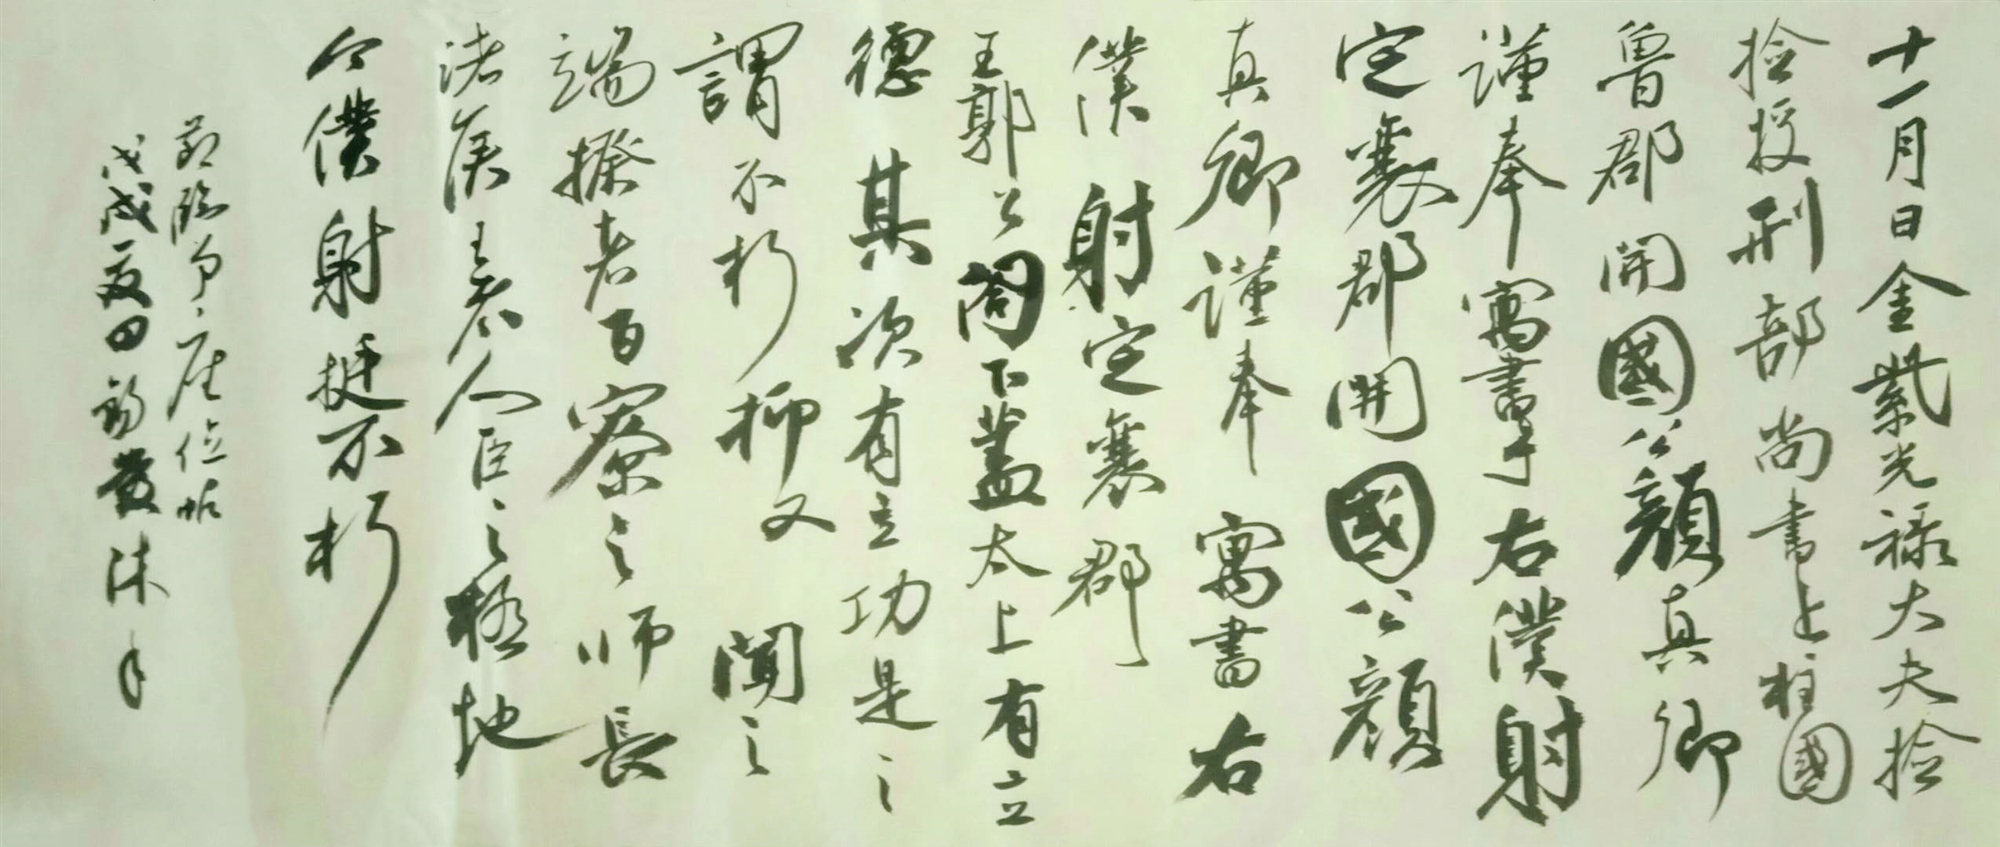 十一月日金紫光禄大夫捡
捡挍刑部尚書上柱國
魯郡開國公顔真卿
謹奉寓書于右僕射
定襄郡開國公顔
真卿謹奉寓書右
僕射定襄郡
王郭公閤下蓋太上有立
德其次有立功是之
謂不朽抑又聞之
端揆者百寮之师長
诸侯王者人臣之極地
今僕射挺不朽
節臨争座位帖
戊戌夏日